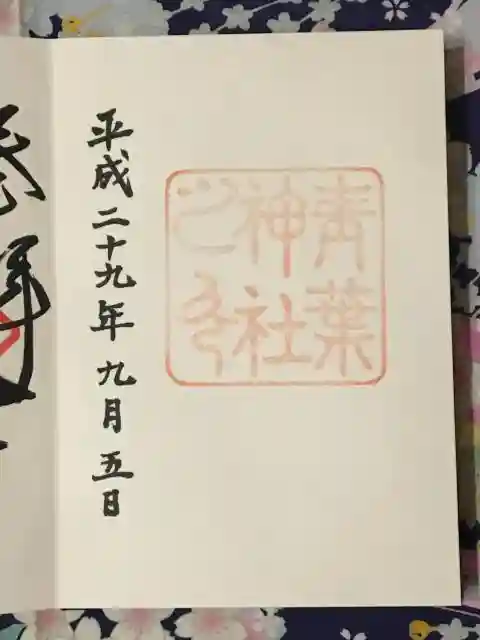 青葉
神社
之印
平成二十九年九月五日
拝